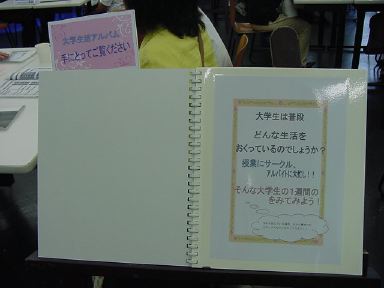 大学生活アルバム
手にとってご覧ください
大学生は普段
どんな生活を
おくっているのでしょうか?
授業にサークル、
アルバイトに大忙し!!
そんな大学生の1週間の
きみてみよう!